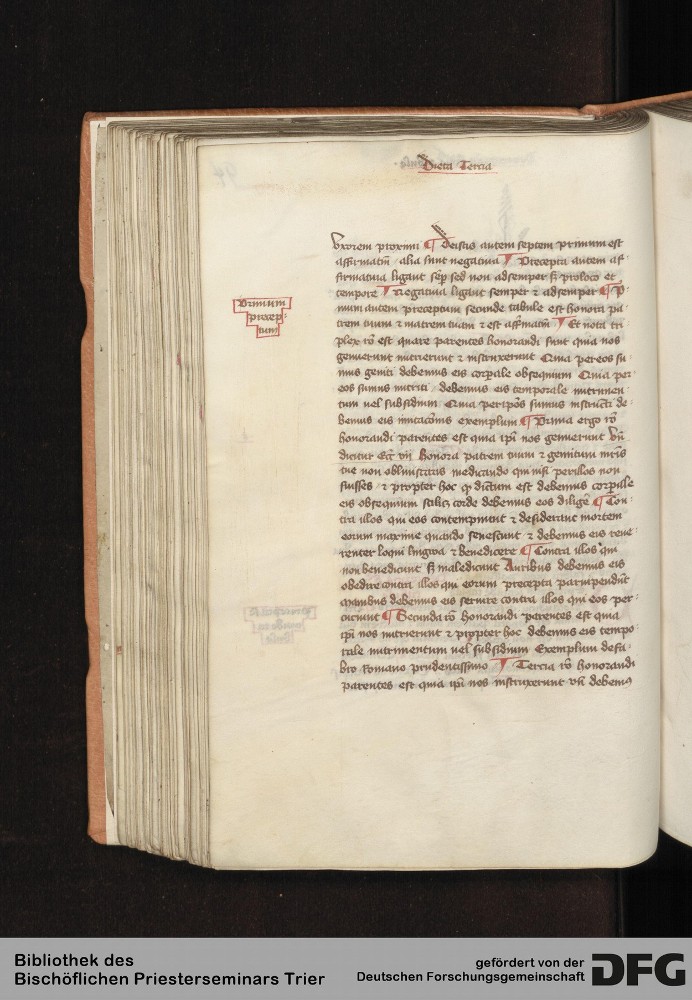 Dieta Tercia
Vxorem proximi ¶ De istis autem septem primum est
affirmatiuum alia sunt negatiua ¶ Precepta autem af
firmatiua ligant semper sed non ad semper sed pro loco et
tempore ¶ Negatiua ligant semper et ad semper ¶ Pri
mum autem preceptum secunde tabule est honora pa
Primum
precep
tum
trem tuum et matrem tuam et est affirmatiuum ¶ Et nota tri
plex racio est quare parentes honorandi sunt quia nos
genuerunt nutrierunt et instruxerunt Quia per eos su
mus geniti debemus eis corporale obsequium Quia per
eos sumus nutriti debemus eis temporale nutrimen
tum uel subsidium Quia per ipsos sumus instructi de
bemus eis imitacionis exemplum ¶ Prima ergo racio
honorandi parentes est quia ipsi nos genuerunt Vnde
dicitur Honora patrem tuum et gemitum matris
tue non obliuiscaris quoniam nisi per illos non
fuisses et propter hoc quod dictum est debemus corporale
eis obsequium scilicet corde debemus eos diligere ¶ Con
tra illos qui eos contempnunt et desiderant mortem
eorum maxime quando senescunt et debemus eis reue
renter loqui lingwa et benedicere ¶ Contra illos qui
non benedicunt sed maledicunt Auribus debemus eis
obedire contra illos qui eorum precepta paruipendunt
manibus debemus eis seruire contra illos qui eos per
cuciunt ¶ Secunda racio honorandi parentes est quia
ipsi nos nutrierunt et propter hoc debemus eis tempo
rale nutrimentum uel subsidium Exemplum de fa
bro Romano prudentissimo ¶ Tercia racio honorandi
parentes est quia ipsi nos instruxerunt vnde debemus
Bibliothek des
Bischöflichen Priesterseminars Trier
gefördert von der
Deutschen Forschungsgemeinschaft
DFG